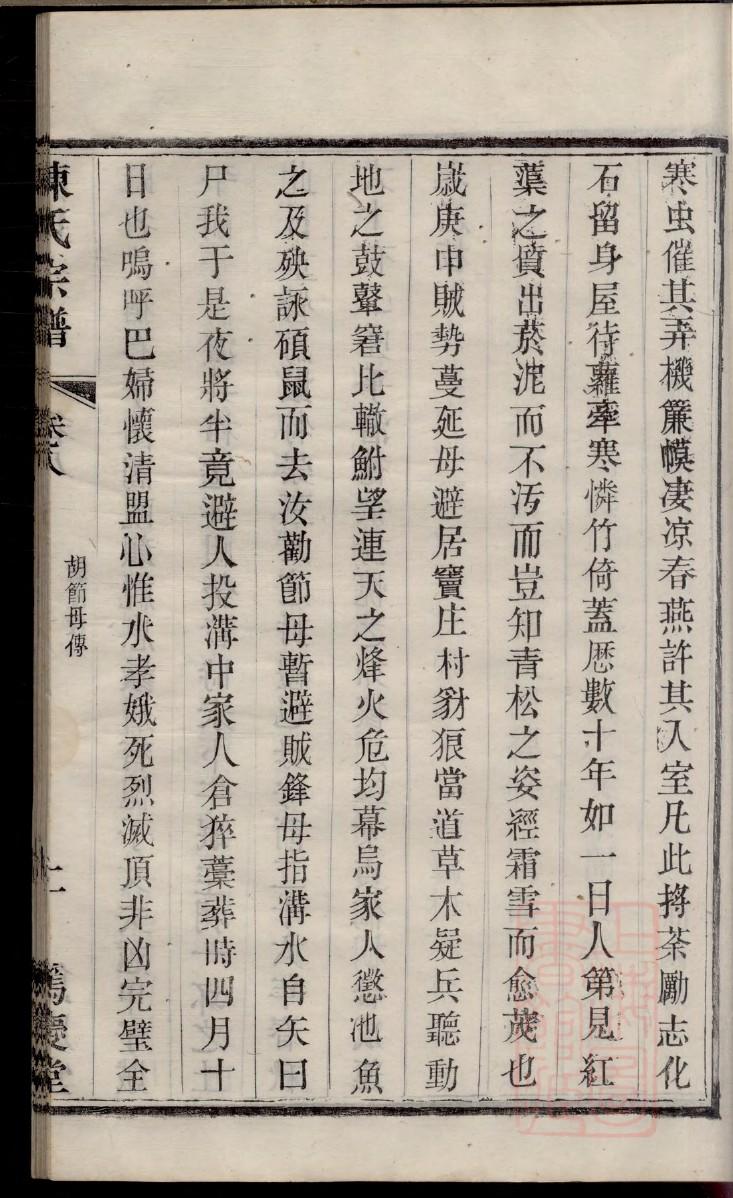 寒虫催其弄機簾幙凄凉春燕許其入室凡此捋荼勵志化
石留身屋待蘿牽寒憐竹倚蓋厯數十年如一日人第見紅
蕖之蕡出菸泥而不汚而豈知青松之姿經霜雪而愈茂也
歲庚申賊勢蔓延母避居竇庄村豺狼當道草木疑兵聽動
地之鼓鼙窘比轍鮒望連天之烽火危均幕烏家人懲池魚
之及殃誅碩鼠而去汝勸節母暫避賊鋒母指溝水自矢曰
尸我于是夜將半竟避人投溝中家人倉猝藁葬時四月十
日也嗚呼巴婦懷清盟心惟水孝娥死烈滅頂非凶完璧全
陳氏宗譜
卷八
胡節母傳